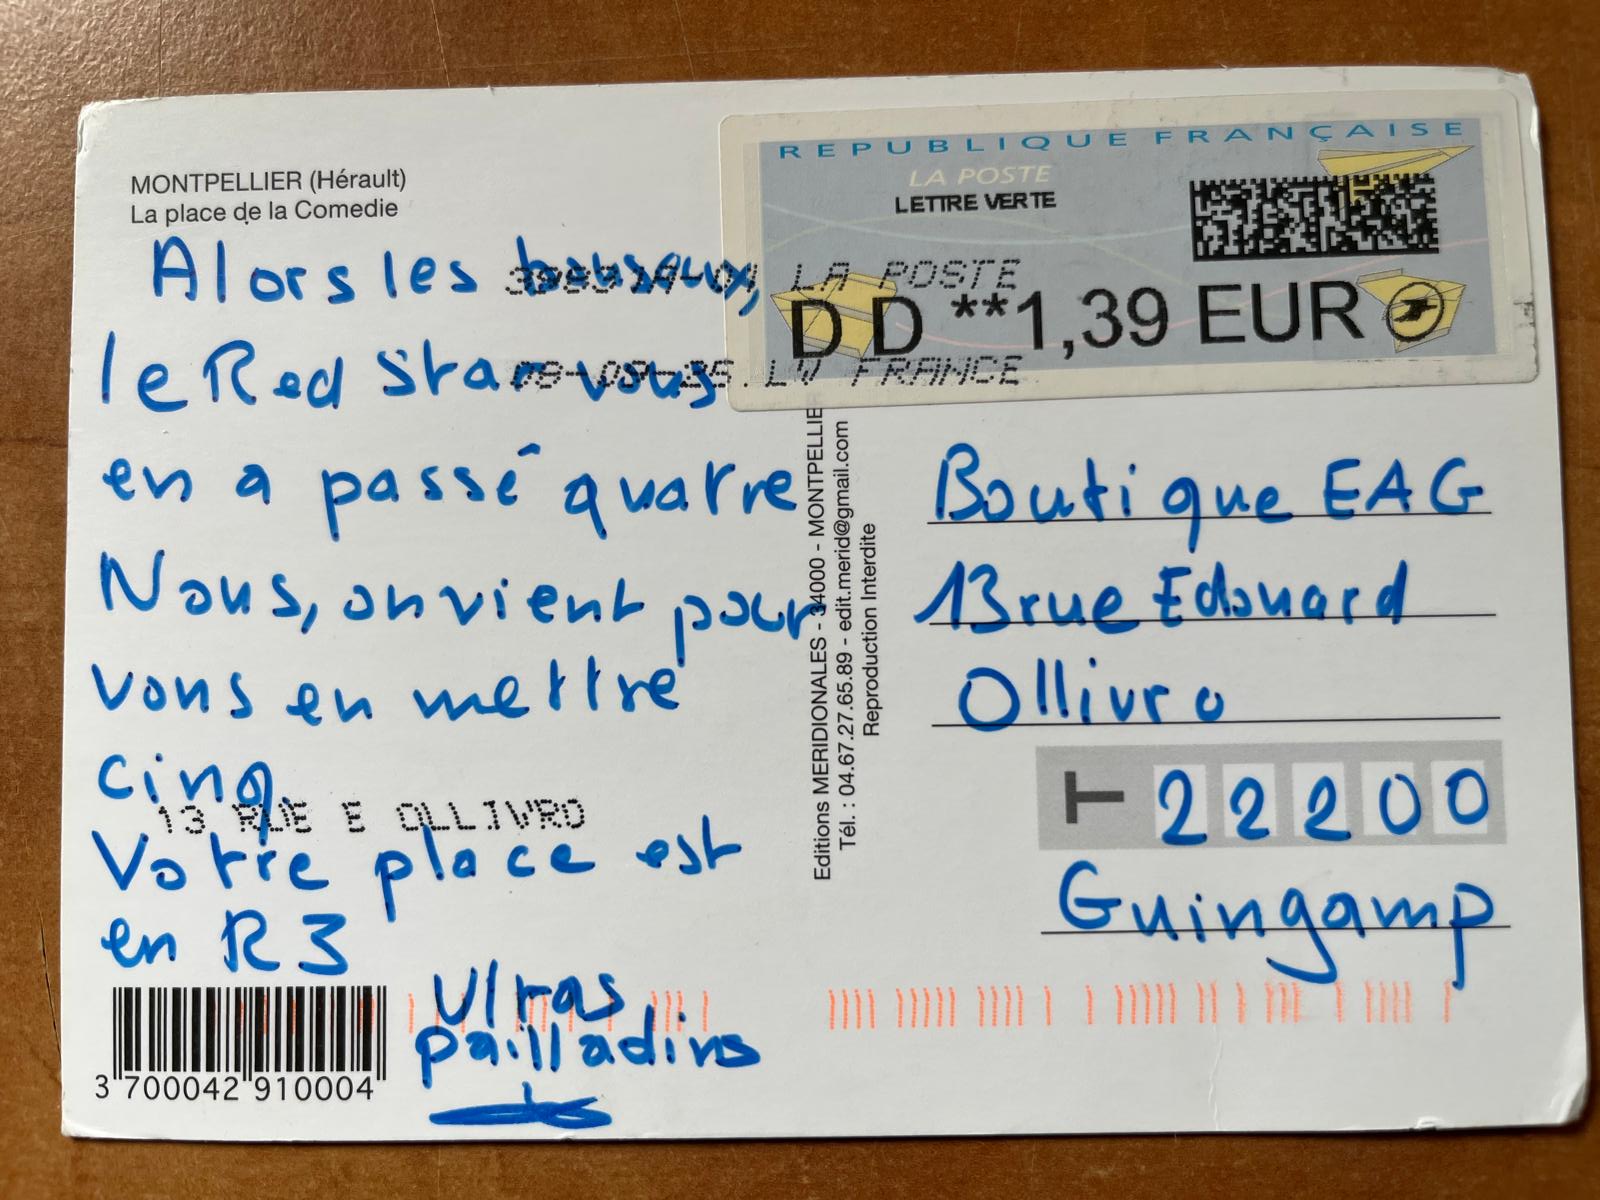 MONTPELLIER (Hérault)
La place de la Comedie
Alors les bouseux,
le Red Star vous
en a passé quatre
Nous, on vient pour
vous en mettre
cinq.
Votre place est
en R3
Ultras
pailladins
13 RUE E OLLIVRO
3 700042 910004
REPUBLIQUE FRANÇAISE
LA POSTE
LETTRE VERTE
DD **1,39 EUR
LA POSTE
LV FRANCE
Editions MERIDIONALES - 34000 - MONTPELLIER
Tél. : 04.67.27.65.89 - edit.merid@gmail.com
Reproduction Interdite
Boutique EAG
13 rue Edouard
Ollivro
T 22200
Guingamp